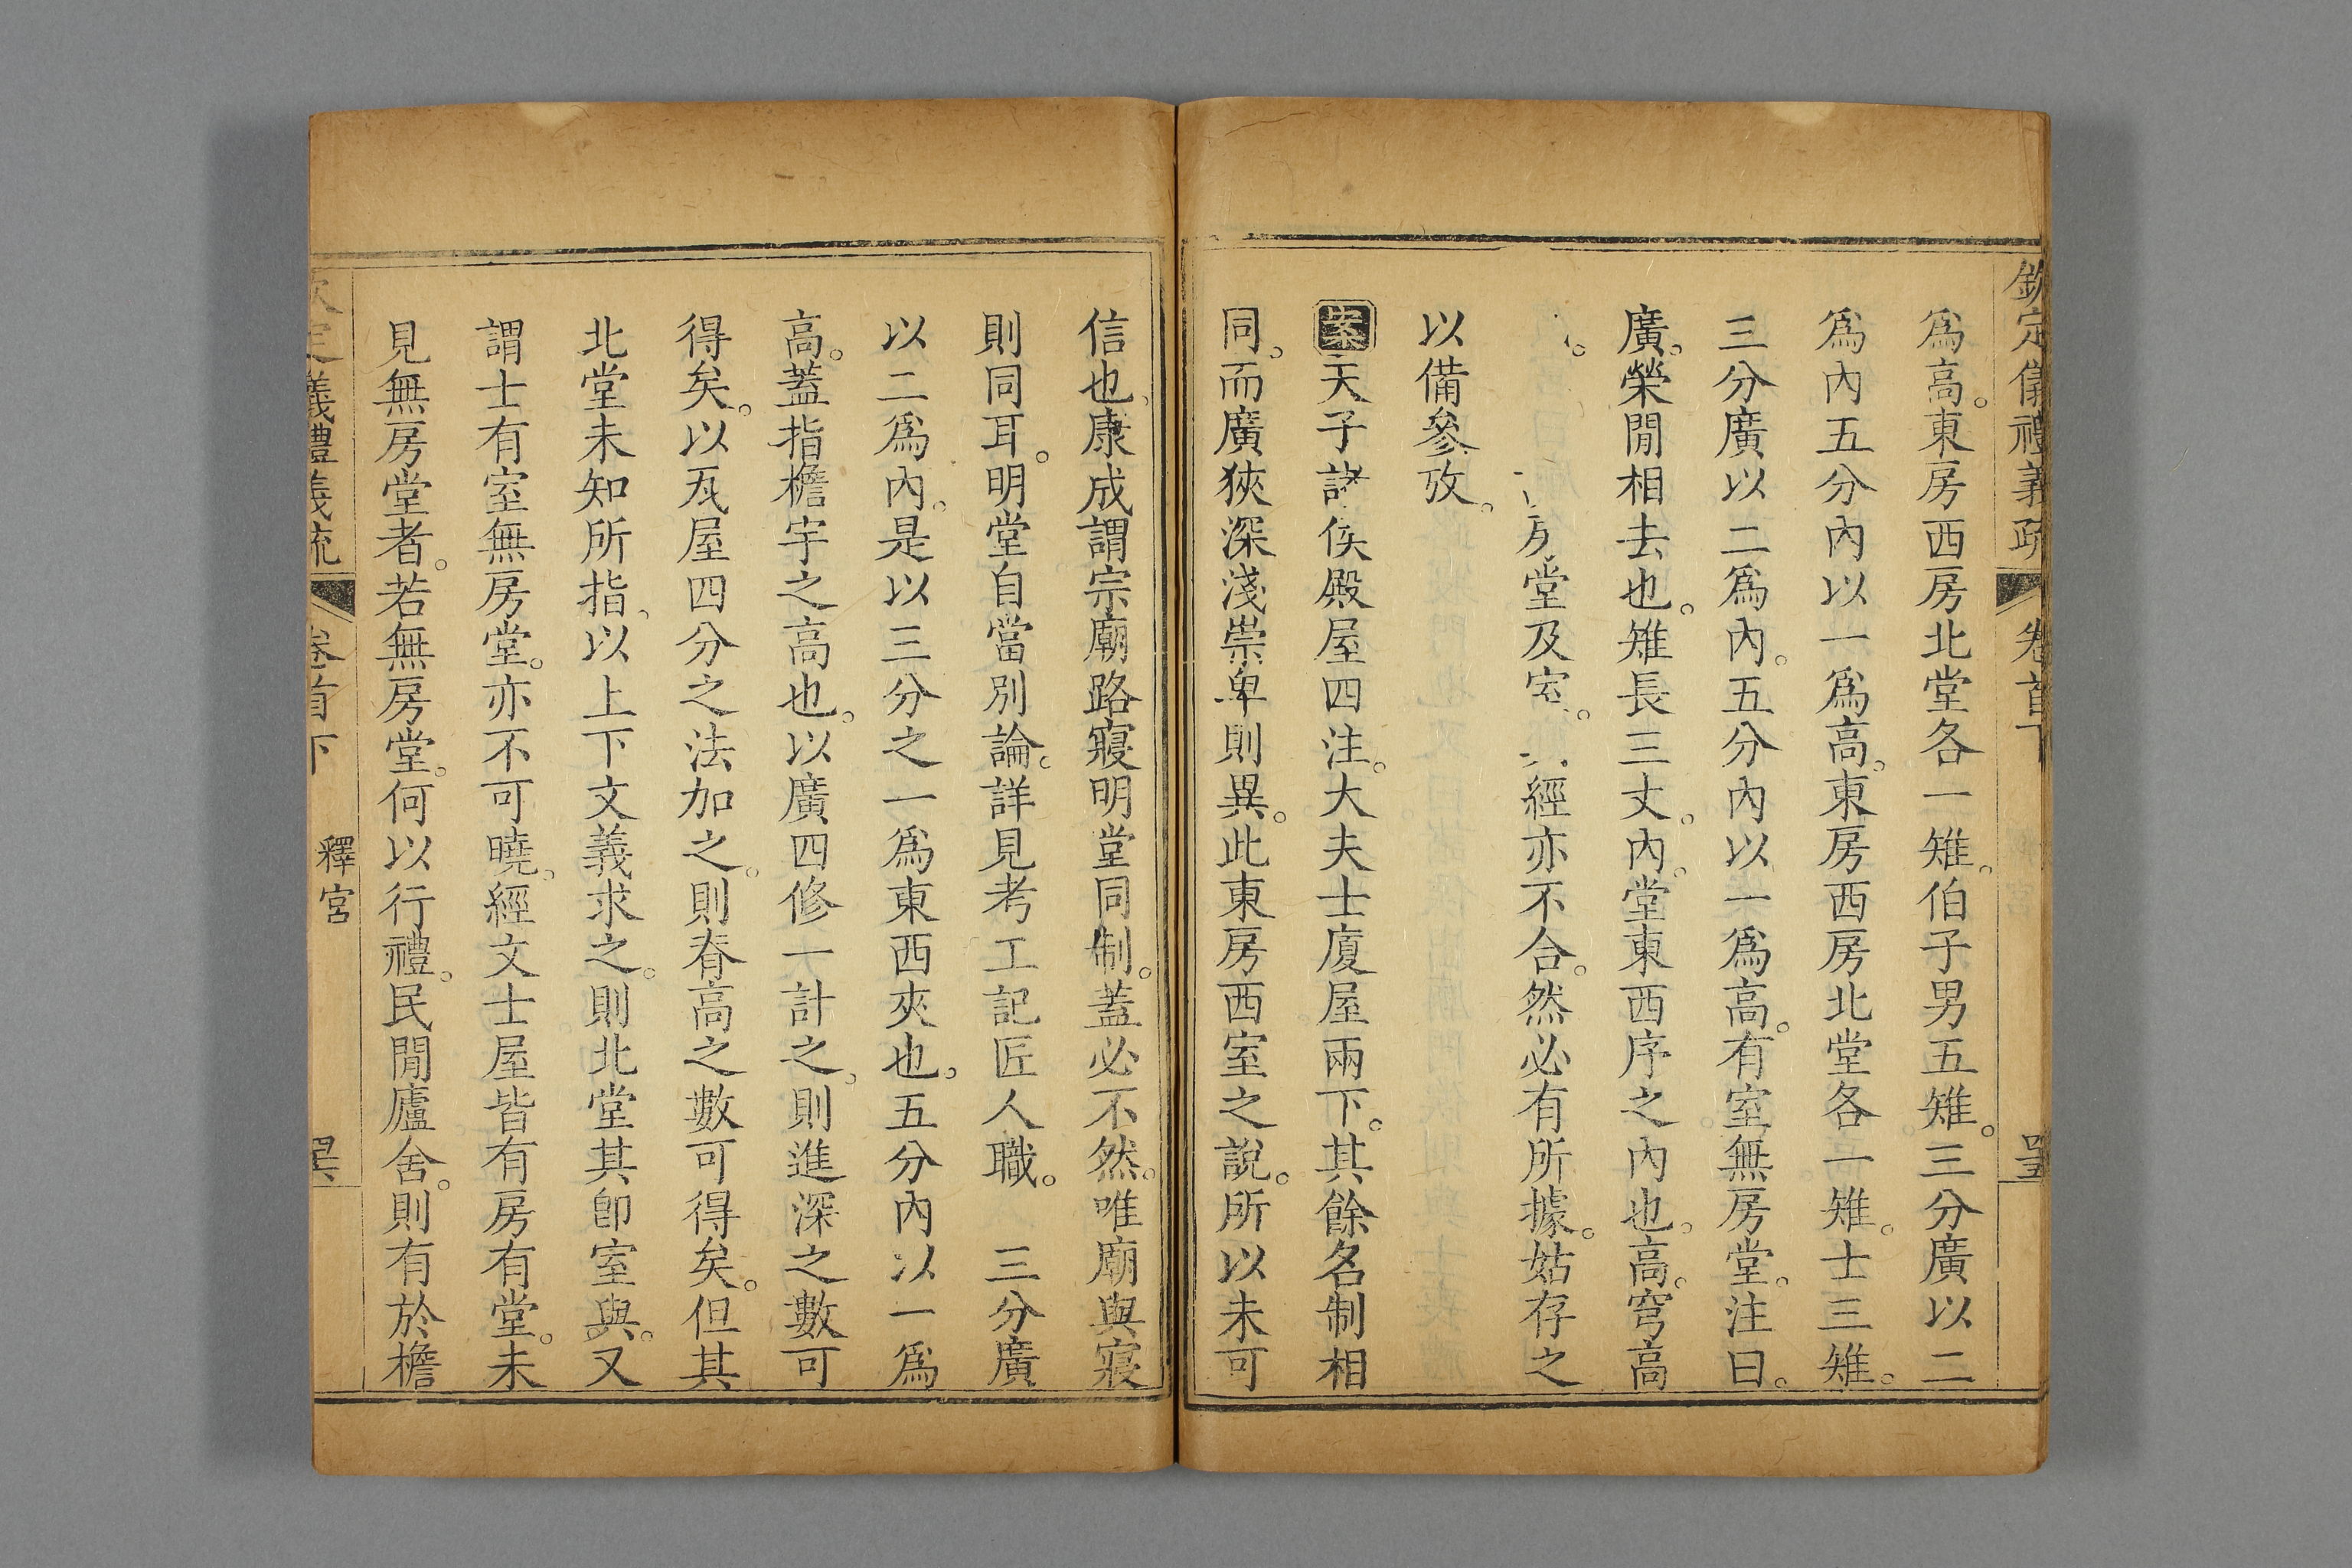 欽定儀禮義疏 卷首下
爲高。東房西房北堂各一雉。伯子男五雉。三分廣以二
爲內五分內以一爲高。東房西房北堂各一雉。士三雉。
三分廣以二爲內。五分內以一爲高。有室無房堂。注曰。
廣。榮閒相去也。雉長三丈。內。堂東西序之內也。高。穹高
房堂及室。經亦不合。然必有所據。姑存之
以備參攷。
案天子諸侯殿屋四注。大夫士廈屋兩下。其餘名制相
同。而廣狹深淺崇卑則異。此東房西室之說。所以未可
信也。康成謂宗廟路寢明堂同制。蓋必不然。唯廟與寢
則同耳。明堂自當別論。詳見考工記匠人職。 三分廣
以二爲內。是以三分之一爲東西夾也。五分內以一爲
高。蓋指檐宇之高也。以廣四修一計之。則進深之數可
得矣。以瓦屋四分之法加之。則脊高之數可得矣。但其
北堂未知所指。以上下文義求之。則北堂其卽室與。又
謂士有室無房堂。亦不可曉。經文士屋皆有房有堂。未
見無房堂者。若無房堂。何以行禮。民閒廬舍。則有於檐
定儀禮義疏 卷首下 釋宮